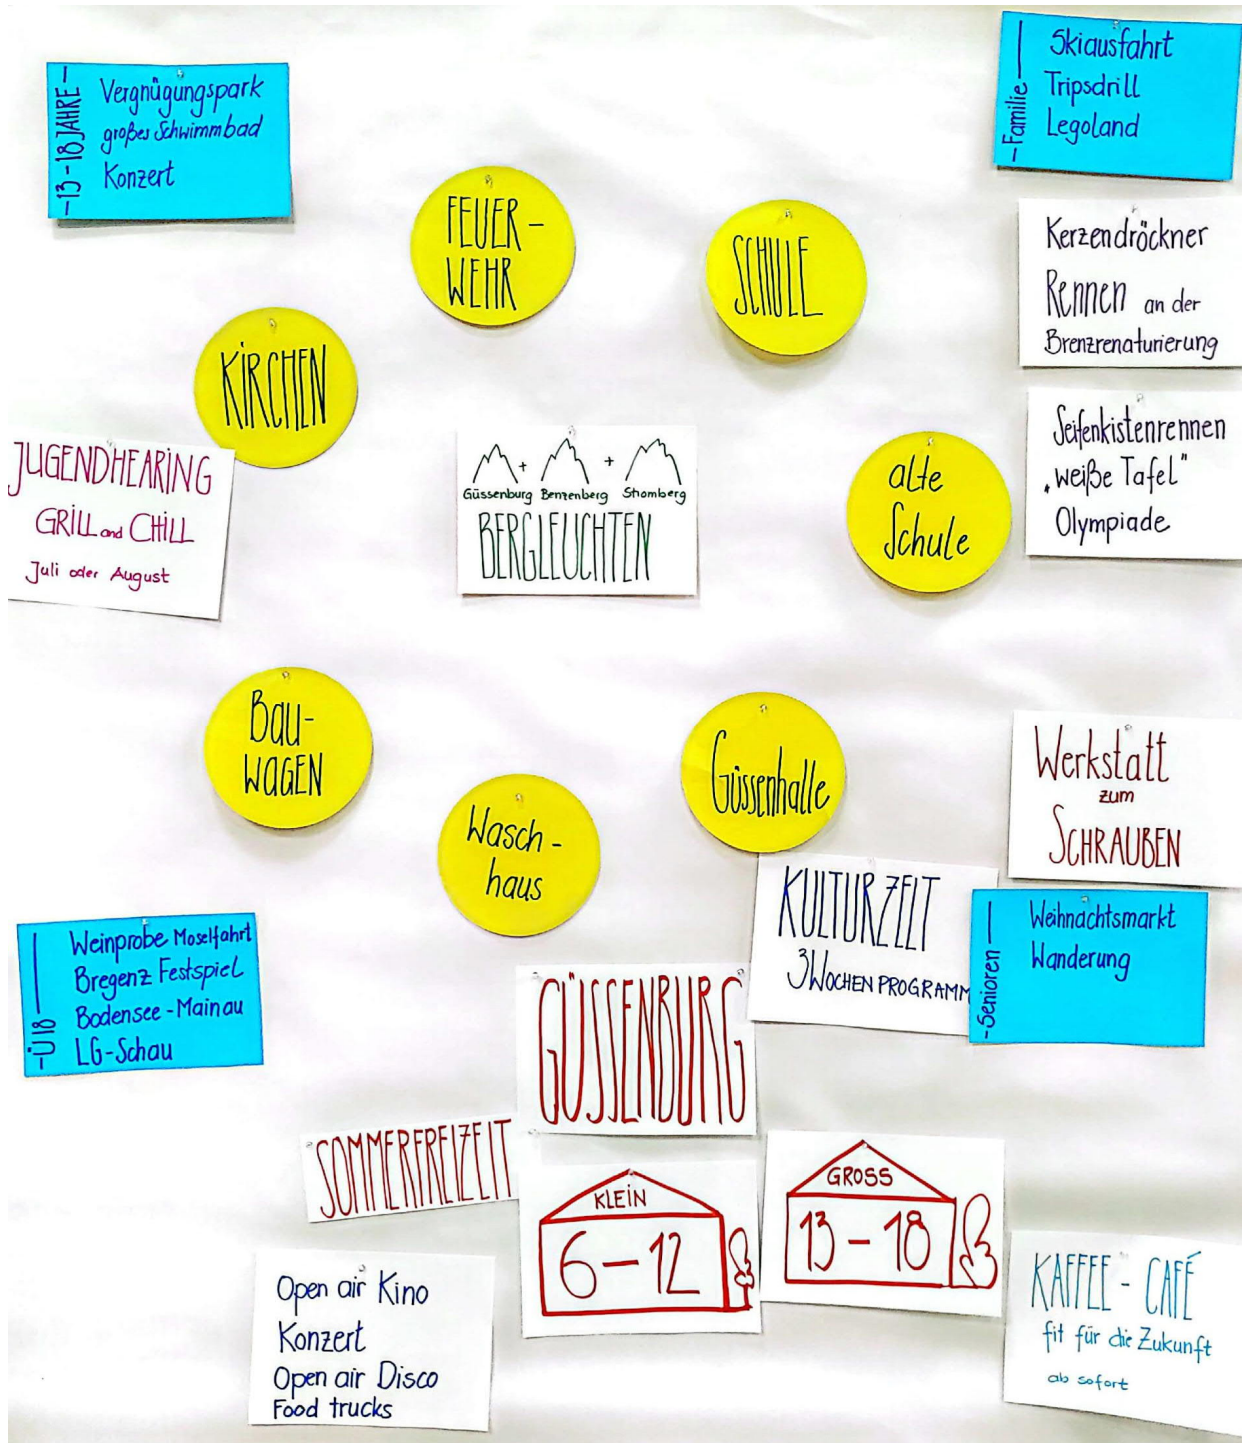 -13-18 JAHRE-
Vergnügungspark
großes Schwimmbad
Konzert
-Familie-
Skiausfahrt
Tripsdrill
Legoland
FEUER-
WEHR
SCHULE
Kerzendröckner
Rennen an der
Brenzrenaturierung
KIRCHEN
JUGENDHEARING
GRILL and CHILL
Juli oder August
+ +
Güssenburg Benzenberg Stromberg
BERGLEUCHTEN
alte
Schule
Seifenkistenrennen
„weiße Tafel"
Olympiade
Bau-
WAGEN
Wasch-
haus
Güssenhalle
Werkstatt
zum
SCHRAUBEN
KULTURZELT
3 WOCHEN PROGRAMM
-Senioren-
Weihnachtsmarkt
Wanderung
-Ü18-
Weinprobe Moselfahrt
Bregenz Festspiel
Bodensee-Mainau
LG-Schau
GÜSSENBURG
SOMMERFREIZEIT
KLEIN
6-12
GROSS
13-18
Open air Kino
Konzert
Open air Disco
Food trucks
KAFFEE-CAFÉ
fit für die Zukunft
ab sofort